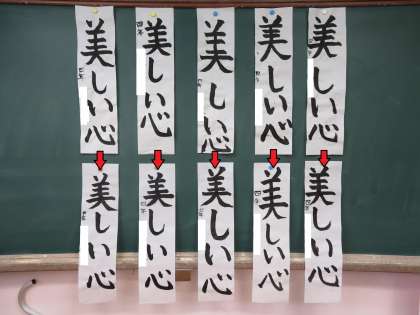 美しい心
美しい心
美しい心
美しい心
美しい心
美しい心
美しい心
美しい心
美しい心
美しい心